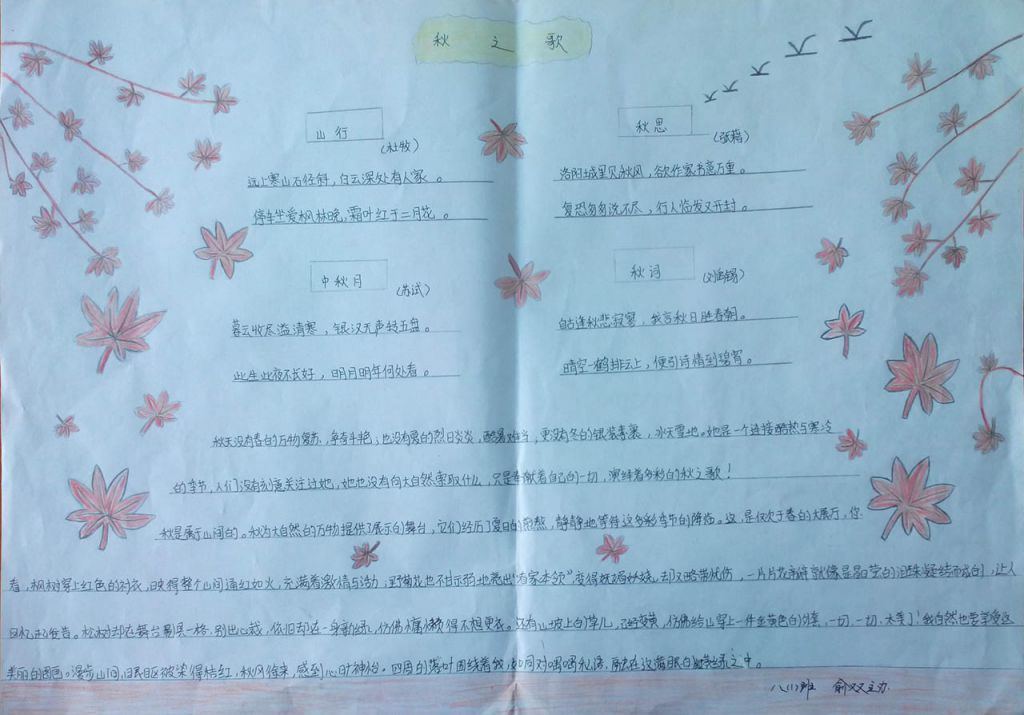 秋之歌
山行
(杜牧)
远上寒山石径斜，白云深处有人家。
停车坐爱枫林晚，霜叶红于二月花。
秋思
(张籍)
洛阳城里见秋风，欲作家书意万重。
复恐匆匆说不尽，行人临发又开封。
中秋月
(苏试)
暮云收尽溢清寒，银汉无声转玉盘。
此生此夜不长好，明月明年何处看。
秋词
(刘禹锡)
自古逢秋悲寂寥，我言秋日胜春朝。
晴空一鹤排云上，便引诗情到碧霄。
秋天没有春的万物复苏，争奇斗艳；也没有夏的烈日炎炎，酷暑难当，更没有冬的银装素裹，冰天雪地。她是一个连接酷热与寒冷
的季节，人们没有刻意关注过她，她也没有向大自然索取什么，只是奉献着自己的一切，演绎着多彩的秋之歌！
秋是属于山间的。秋为大自然的万物提供了展示的舞台，它们经历了夏日的煎熬，静静地等待这多彩季节的降临。这，是仅次于春的大展厅，你
看，枫树穿上红色的衬衣，映得整个山间通红如火，充满着激情与活力；野菊花也不甘示弱地亮出"看家本领"变得妩媚妖娆，却又略带忧伤，一片片花瓣就像是晶莹的泪珠凝结而成的，让人
回忆起往昔。松树却在舞台别具一格，别出心裁，依旧却在一身新绿，仿佛慵懒得不想更衣。还有山坡上的草儿，已经变黄，仿佛给山穿上一件金黄色的外套，一切，一切，太美了！我自然也要享受这
美丽的图画。漫步山间，旧民区被染得桔红，秋风徐来，感到心旷神怡。四周的落叶围绕着我，如同对喁喁私语，
八(1)班 俞双 主办